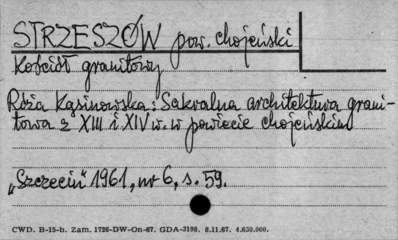 STRZESZÓW pow. chojeński
Kościół granitowy
Róża Kąsinowska: Sakralna architektura grani-
towa z XIII i XIV w. w powiecie chojeńskim
„Szczecin" 1961, nr 6, s. 59.
CWD. B-15-b. Zam. 1726-DW-On-67. GDA-3198. 8.11.67. 4.630.000.